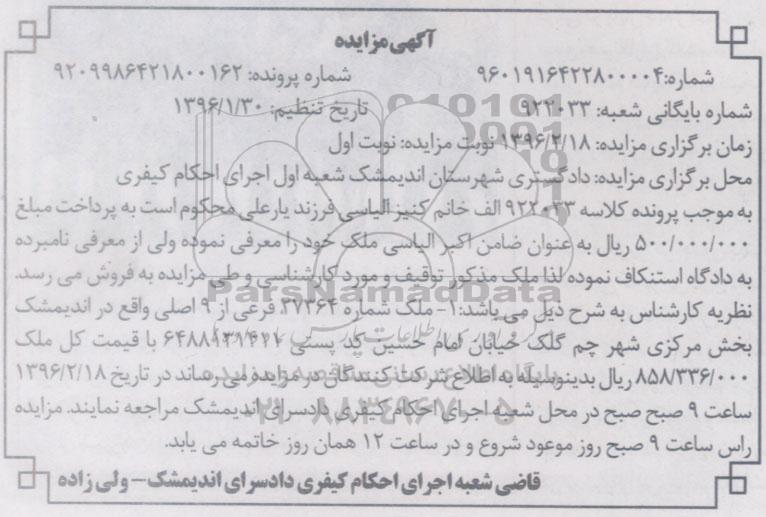 آگهی مزایده
شماره: ۹۶۰۱۹۱۶۴۲۲۸۰۰۰۰۴ شماره پرونده: ۹۲۰۹۹۸۶۴۲۱۸۰۰۱۶۲
شماره بایگانی شعبه: ۹۲۲۰۳۳ تاریخ تنظیم: ۱۳۹۶/۱/۳۰
زمان برگزاری مزایده: ۱۳۹۶/۲/۱۸ نوبت مزایده: نوبت اول
محل برگزاری مزایده: دادگستری شهرستان اندیمشک شعبه اول اجرای احکام کیفری
به موجب پرونده کلاسه ۹۲۲۰۳۳ الف خانم کنیز الیاسی فرزند یارعلی محکوم است به پرداخت مبلغ
۵۰۰/۰۰۰/۰۰۰ ریال به عنوان ضامن اکبر الیاسی ملک خود را معرفی نموده ولی از معرفی نامبرده
به دادگاه استنکاف نموده لذا ملک مذکور توقیف و مورد کارشناسی و طی مزایده به فروش می رسد.
نظریه کارشناس به شرح ذیل می باشد: ۱- ملک شماره ۳۷۳۶۴ فرعی از ۹ اصلی واقع در اندیمشک
بخش مرکزی شهر چم گلک خیابان امام حسین کد پستی با قیمت کل ملک
۸۵۸/۳۳۶/۰۰۰ ریال بدینوسیله به اطلاع شرکت کنندگان در مزایده می رساند در تاریخ ۱۳۹۶/۲/۱۸
ساعت ۹ صبح صبح در محل شعبه اجرای احکام کیفری دادسرای اندیمشک مراجعه نمایند. مزایده
راس ساعت ۹ صبح روز موعود شروع و در ساعت ۱۲ همان روز خاتمه می یابد.
قاضی شعبه اجرای احکام کیفری دادسرای اندیمشک – ولی زاده
ParsNamadData